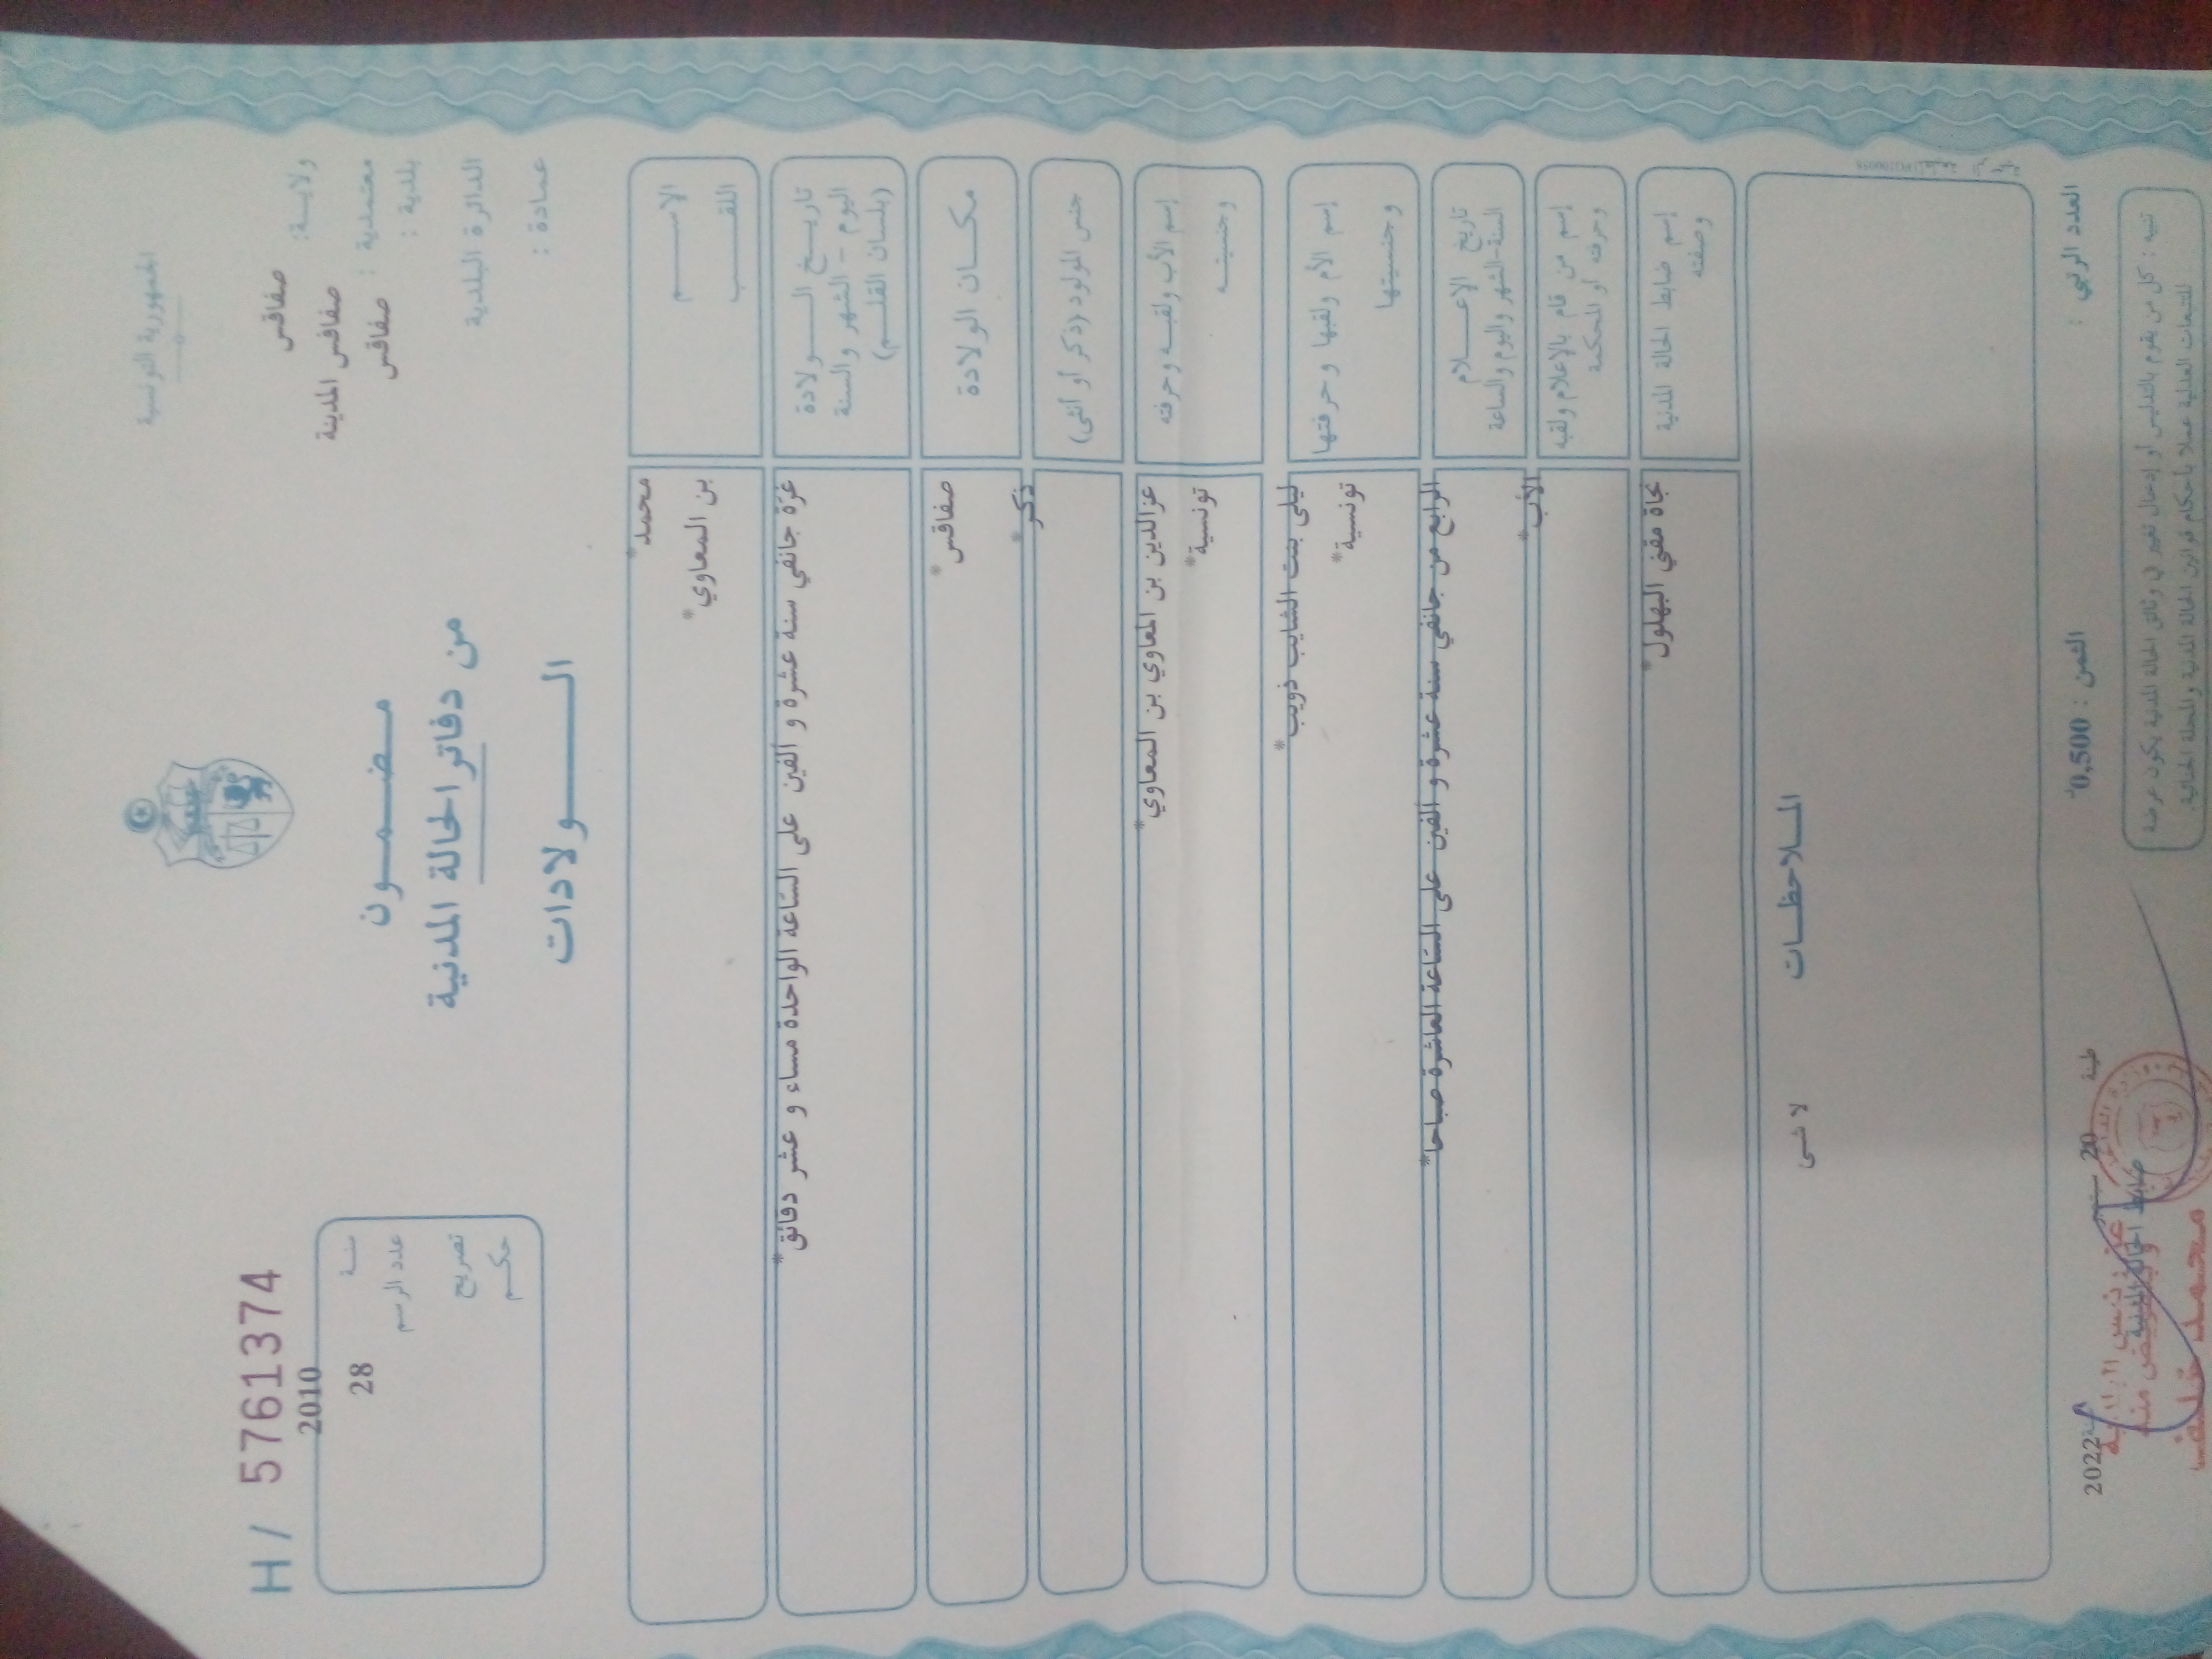 الجمهورية التونسية
ولايــة: صفاقس
معتمدية : صفاقس المدينة
بلدية : صفاقس
الدائرة البلدية :
عمادة :
مـضـمـون
من دفاتر الحالة المدنية
الـولادات
H / 5761374
2010
سنة
28
عدد الرسم
تصريح
حكم
الاســم
محمد*
اللقــب
بن المعاوي*
تاريـخ الــولادة
اليوم - الشهر والسنة
(بلسان القلـم)
غرّة جانفي سنة عشرة و ألفين على الساعة الواحدة مساء و عشر دقائق*
مكـان الولادة
صفاقس*
جنس المولود (ذكر أو أنثى)
ذكر*
إسم الأب ولقبـه وحرفته
وجنسيتـه
عزالدين بن المعاوي بن المعاوي*
تونسية*
إسم الأم ولقبها وحرفتها
وجنسيتها
ليلى بنت الشايب ذويب*
تونسية*
تاريخ الإعــلام
السنة-الشهر واليوم والساعة
الرابع من جانفي سنة عشرة و ألفين على الساعة العاشرة صباحا*
إسم من قام بالإعلام ولقبه
وحرفته أو المحكمة
الأب*
إسم ضابط الحالة المدنية
وصفته
نجاة مقني البهلول*
المـلاحظـات
لا شى
العدد الرتبي :
الثمن : 0,500
20
2022
ضابط الحالة المدنية
تنبيه : كل من يقوم بالتدليس أو إدخال تغيير في وثائق الحالة المدنية يكون عرضة
للتتبعات العدلية عملا بأحكام قوانين الحالة المدنية والمجلة الجنائية.